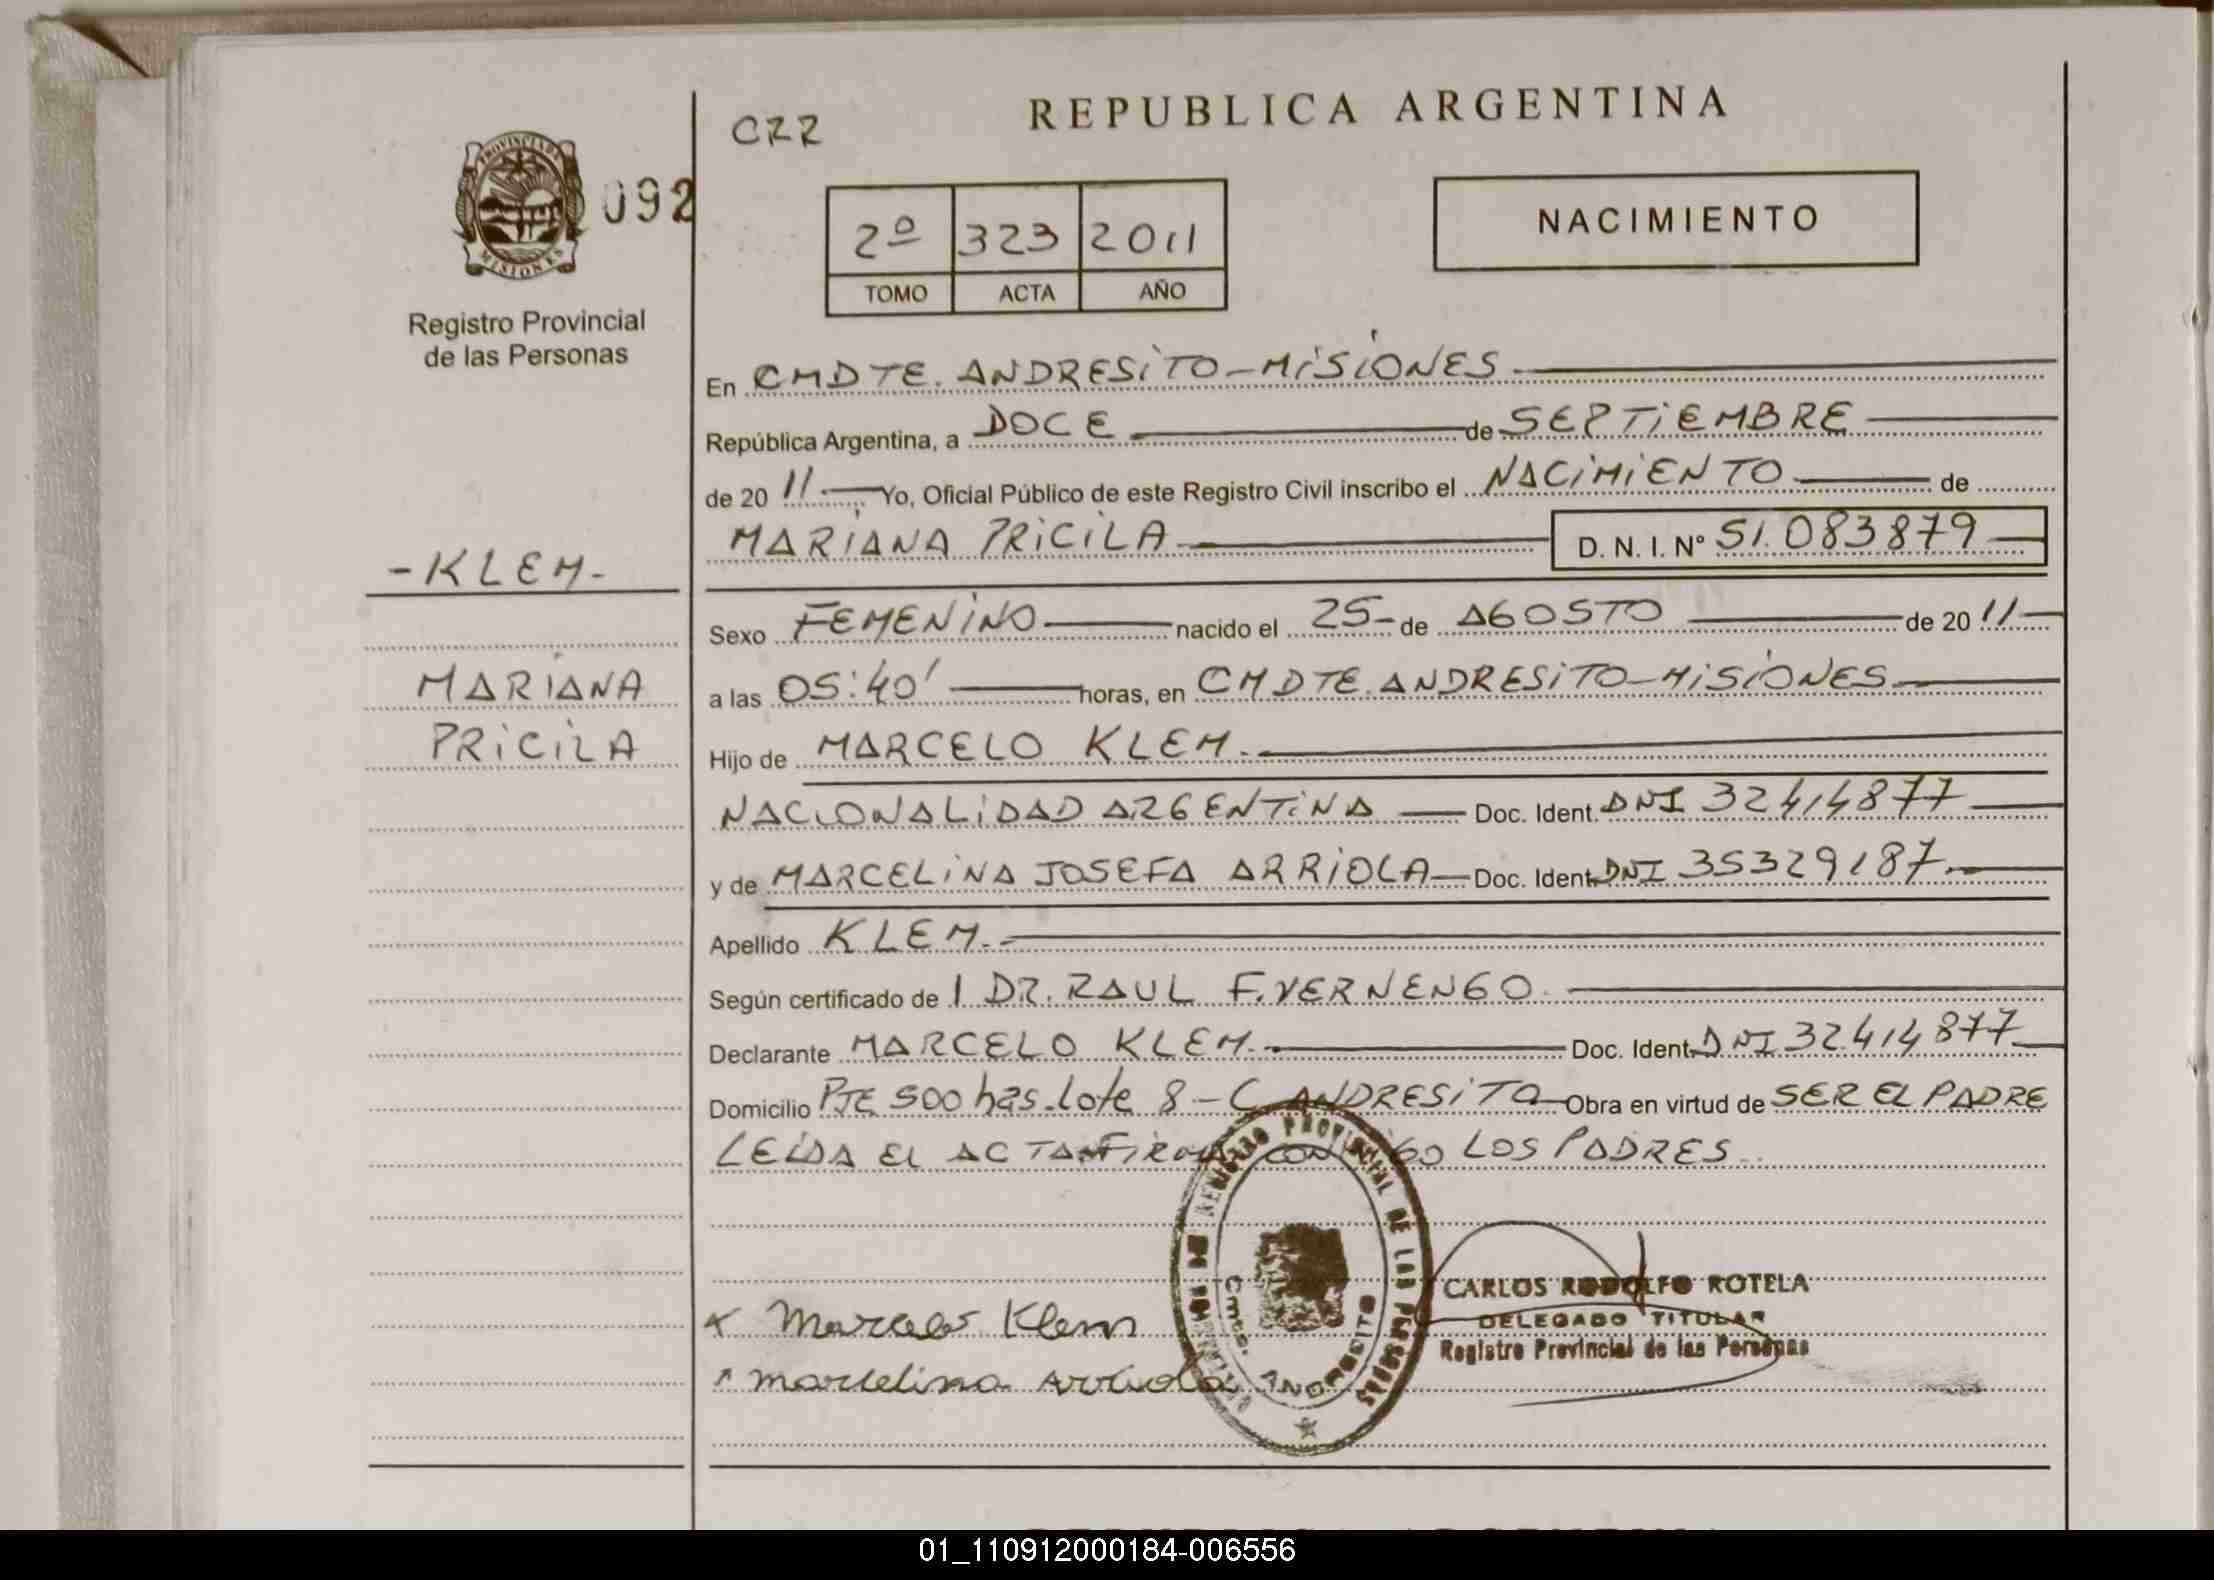 REPUBLICA ARGENTINA
CRR
PROVINCIA DE
MISIONES
092
Registro Provincial
de las Personas
2º 323 2011
TOMO ACTA AÑO
NACIMIENTO
En CMDTE. ANDRESITO-MISIONES
República Argentina, a DOCE de SEPTIEMBRE
de 20 11 Yo, Oficial Público de este Registro Civil inscribo el NACIMIENTO de
MARIANA PRICILA D. N. I. N° 51.083879
-KLEM-
Sexo FEMENINO nacido el 25- de AGOSTO de 20 11
MARIANA
a las 05:40' horas, en CMDTE. ANDRESITO-MISIONES
PRICILA
Hijo de MARCELO KLEM.
NACIONALIDAD ARGENTINA Doc. Ident. DNI 32414877
y de MARCELINA JOSEFA ARRIOLA Doc. Ident. DNI 35329187
Apellido KLEM.
Según certificado de 1 DR. RAUL F. VERNENGO.
Declarante MARCELO KLEM. Doc. Ident. DNI 32414877
Domicilio PJE 500 has. lote 8 - C ANDRESITO Obra en virtud de SER EL PADRE
LEIDA EL ACTA FIRMA CON LOS PADRES.
REGISTRO PROVINCIAL DE LAS PERSONAS
Cmte. ANDRESITO
CARLOS RODOLFO ROTELA
DELEGADO TITULAR
Registro Provincial de las Personas
Marcelo Klem
Marcelina Arriola
01_110912000184-006556